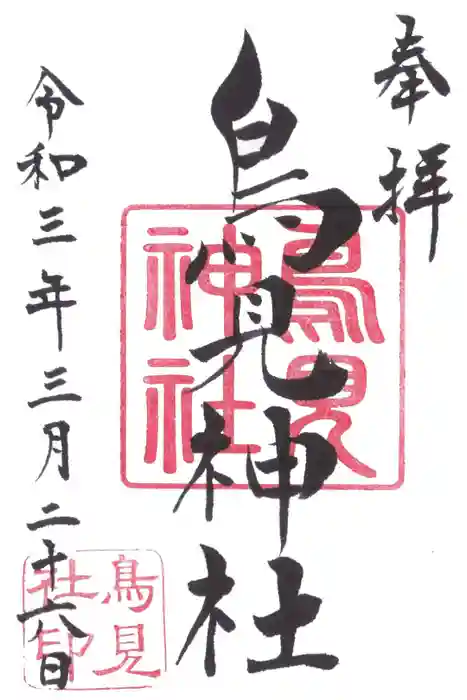 奉拝
鳥見神社
鳥見
神社
令和三年三月二十六日
鳥見
社印